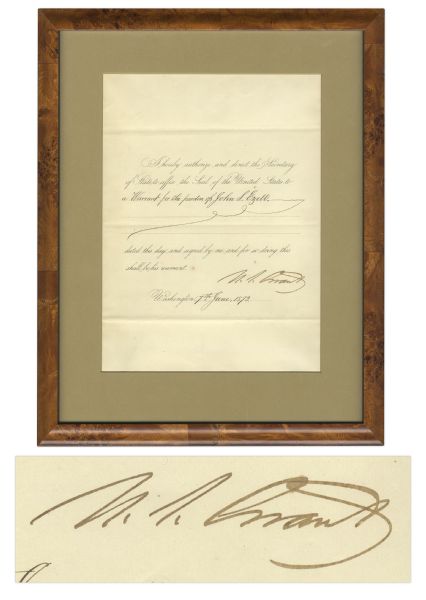 I hereby authorize and direct the Secretary
of State to affix the Seal of the United States to
a Warrant for the pardon of John S. Ezell.
dated this day and signed by me, and for so doing this
shall be his warrant.
U. S. Grant
Washington, 7th June, 1873.
U. S. Grant